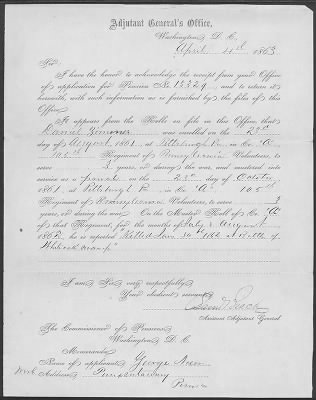 Adjutant General's Office,
Washington, D. C.,
April 4th 1863
Sir:
I have the honor to acknowledge the receipt from your Office
of application for Pension No. 13329, and to return it
herewith, with such information as is furnished by the files of this
Office.
It appears from the Rolls on file in this Office, that
Daniel was enrolled on the 23d
day of August 1861, at Pittsburgh Pa. in Co. "A"
105th Regiment of Pennsylvania Volunteers, to
serve 3 years, or during the war, and mustered into
service as a private on the 23d day of October
1861, at Pittsburgh Pa in Co. "A" 105th
Regiment of Pennsylvania Volunteers, to serve 3
years, or during the war. On the Muster Roll of Co. "A"
of that Regiment, for the months of July & August
1862, he is reported "Killed June 30 1862 at Battle of
"
I am, Sir, very respectfully,
Your obedient servant,
Assistant Adjutant General
The Commissioner of Pensions
Washington, D. C.
Memoranda:
Name of applicant, George
Address, Punxsutawney
Penna